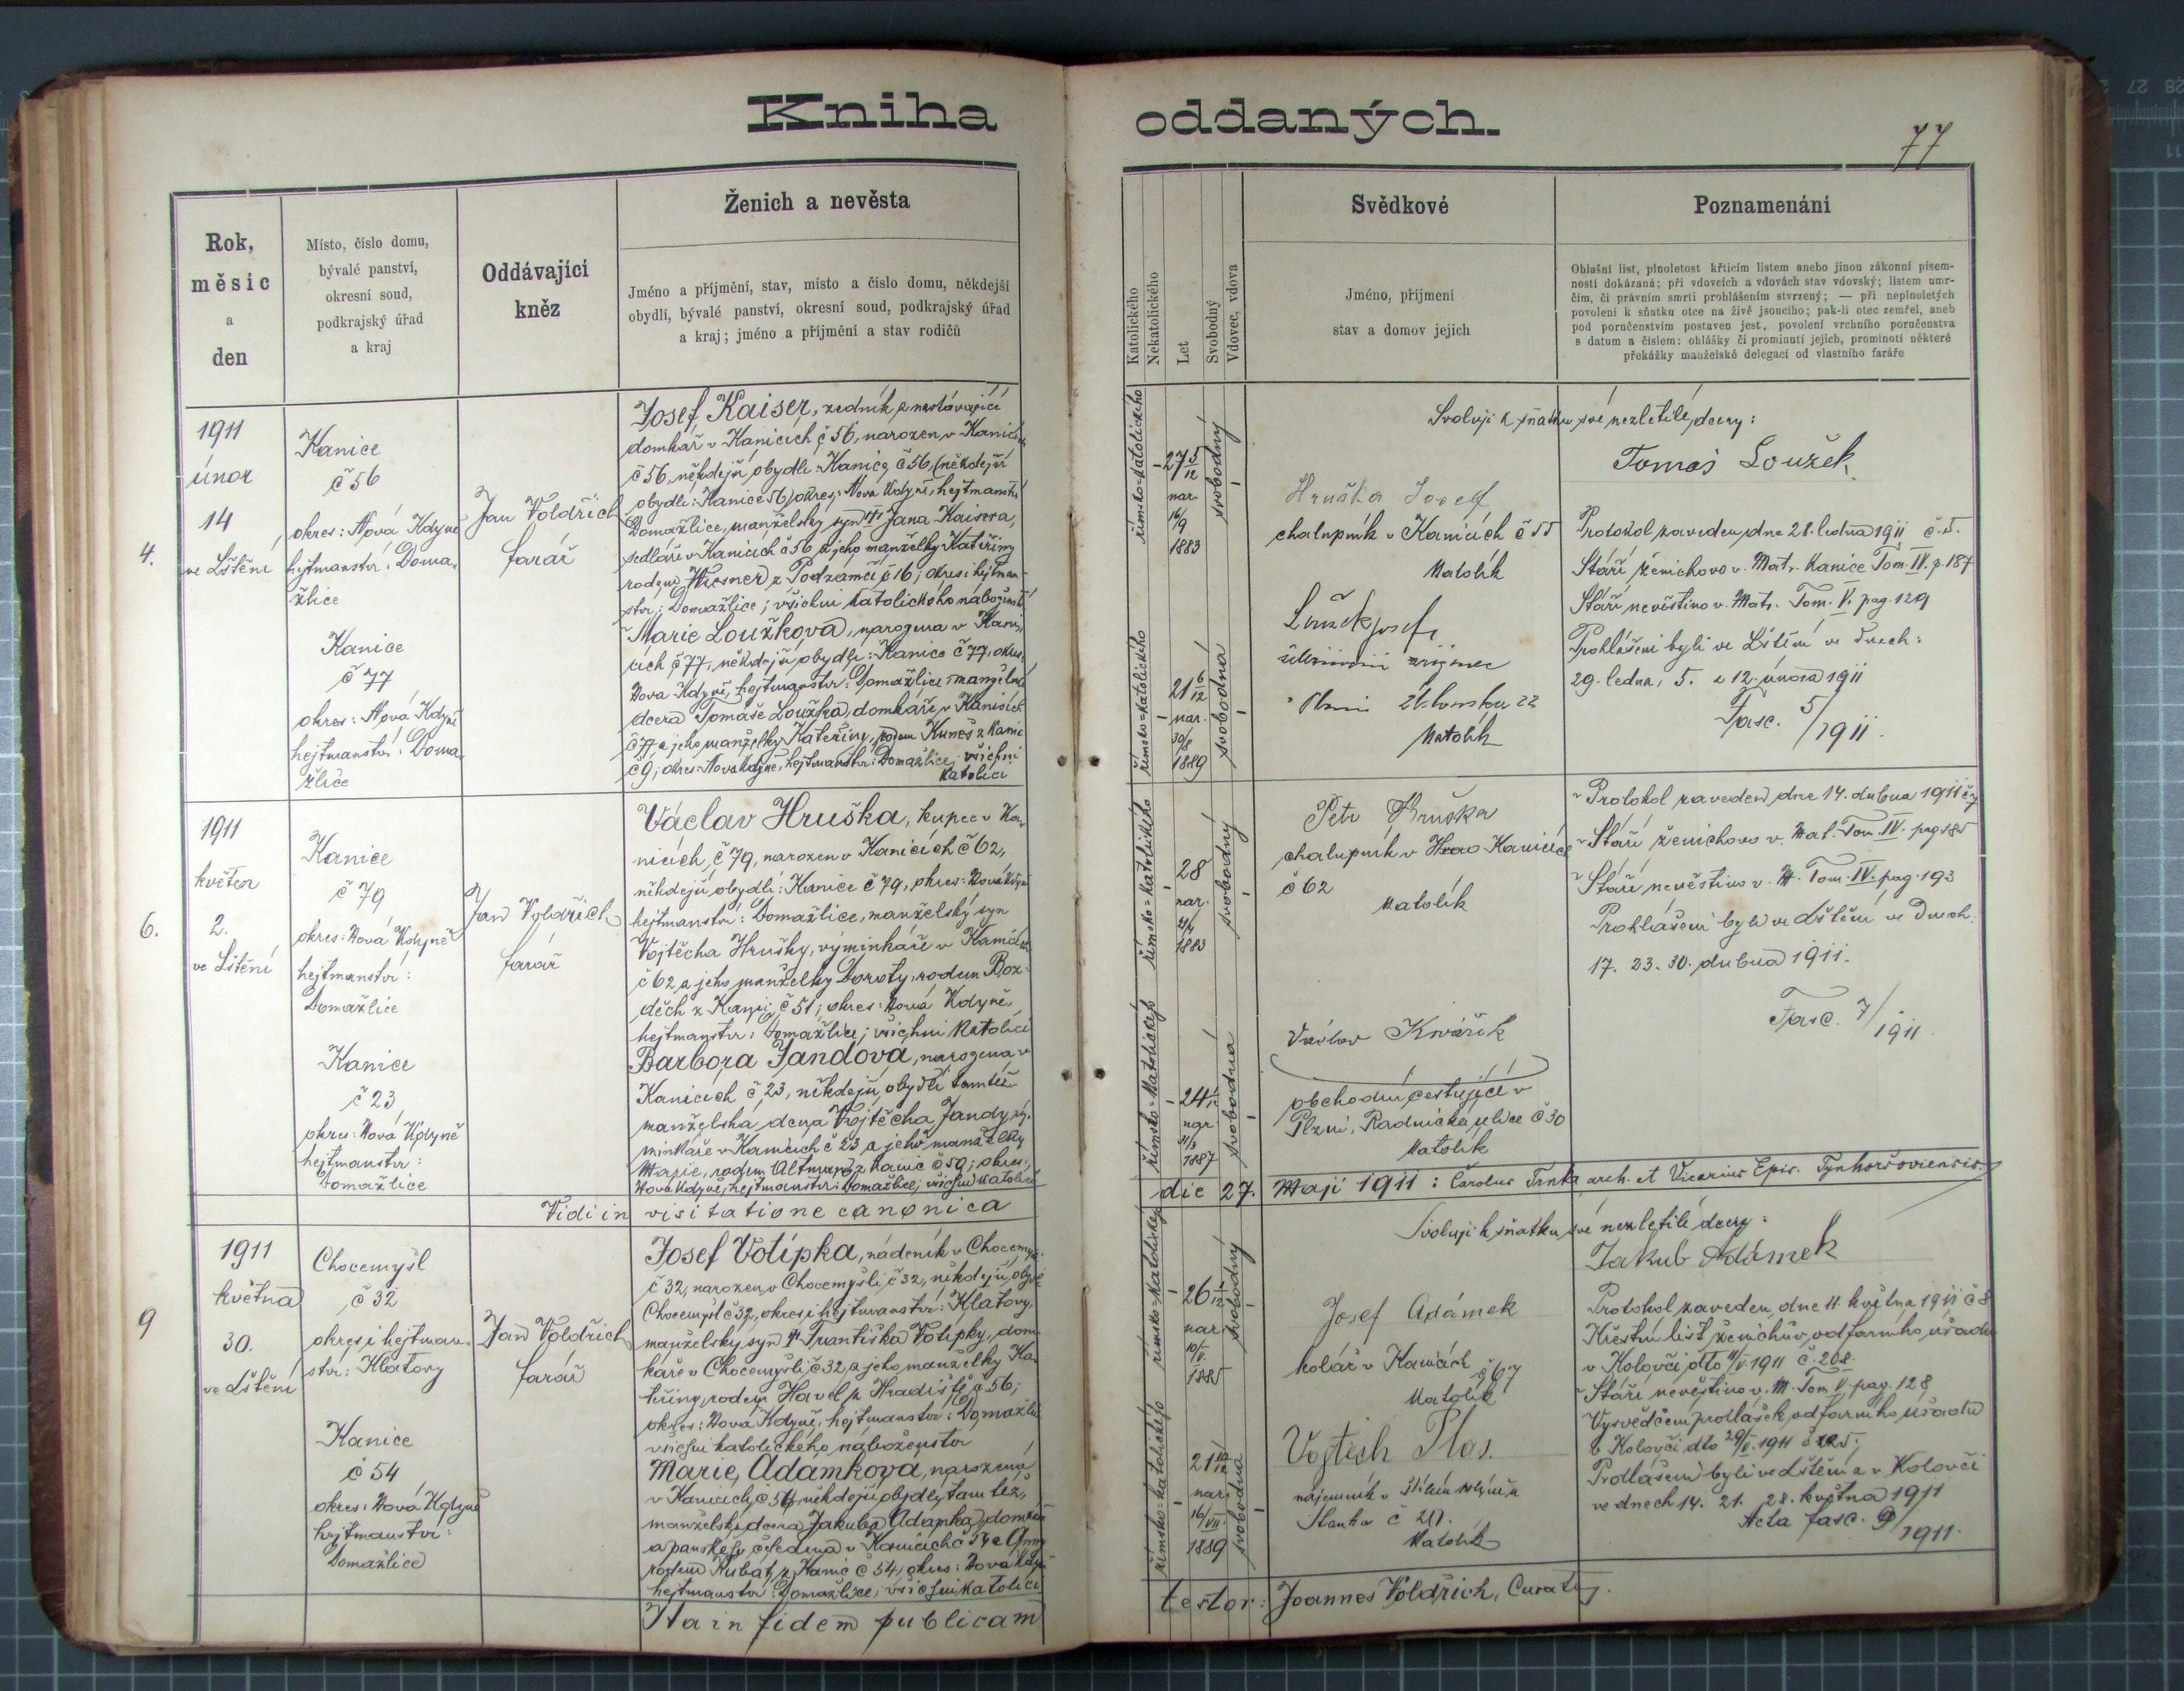 Kniha
oddaných.
77
Rok,
měsíc
a
den
Místo, číslo domu,
bývalé panství,
okresní soud,
podkrajský úřad
a kraj
Oddávající
kněz
Ženich a nevěsta
Jméno a příjmění, stav, místo a číslo domu, někdejší
obydlí, bývalé panství, okresní soud, podkrajský úřad
a kraj; jméno a příjmění a stav rodičů
Katolického
Nekatolického
Let
Svobodný
Vdovec, vdova
Svědkové
Jméno, příjmení
stav a domov jejich
Poznamenání
Ohlašní list, plnoletost křticím listem anebo jinou zákonní písem-
ností dokázaná; při vdovcích a vdovách stav vdovský; listem umr-
čím, či právním smrti prohlášením stvrzený; — při neplnoletých
povolení k sňatku otce na živě jsoucího; pak-li otec zemřel, aneb
pod poručenstvím postaven jest, povolení vrchního poručenstva
s datum a číslem: ohlášky či prominutí jejich, prominutí některé
překážky manželské delegací od vlastního faráře
4.
1911
únor
14
ve Lštění
Kanice
č 56
okres: Nová Kdyně
hejtmanství: Doma-
žlice
Kanice
č 77
okres: Nová Kdyně
hejtmanství: Doma-
žlice
Jan Voldřich
farář
Josef Kaiser, zedník a nastávající
domkář v Kanicích č 56, narozen v Kanicích
č 56, někdejší obydlí: Kanice č 56, (někdejší
obydlí: Kanice 56) okres: Nová Kdyně, hejtmanství
Domažlice, manželský syn † Jana Kaisera,
sedláře v Kanicích č 56 a jeho manželky Kateřiny
rodem Wiesner z Podzámčí č 16; okres i hejtman-
ství: Domažlice; všichni katolického náboženství
Marie Loužková, narozena v Kani-
cích č 77, někdejší obydlí: Kanice č 77, okres
Nová Kdyně, hejtmanství: Domažlice manželská
dcera Tomáše Loužka, domkáře v Kanicích
č 77 a jeho manželky Kateřiny, rodem Kuneš z Kanic
č 9; okres: Nová Kdyně, hejtmanství: Domažlice; všichni
katolíci
římsko=katolického
27 5/12
nar.
16/9
1883
svobodný
římsko=katolického
21 6/12
nar.
30/8
1889
svobodná
Hruška Josef
chalupník v Kanicích č 55
katolík
Loužek Josef
v Plzni
22
katolík
Svoluji k sňatku své nezletilé dcery:
Tomáš Loužek
Protokol zaveden dne 28. ledna 1911 č. 5.
Stáří ženichovo v. Matr. Kanice Tom. IV. p. 187
Stáří nevěstino v. Matr. Tom. V. pag. 129
Prohlášeni byli ve Lštění ve dnech:
29. ledna, 5. a 12. února 1911
Fasc. 5/1911.
6.
1911
květen
2.
ve Lštění
Kanice
č 79
okres: Nová Kdyně
hejtmanství:
Domažlice
Kanice
č 23
okres: Nová Kdyně
hejtmanství:
Domažlice
Jan Voldřich
farář
Václav Hruška, kupec v Ka-
nicích č 79, narozen v Kanicích č 62,
někdejší obydlí: Kanice č 79, okres: Nová Kdyně
hejtmanství: Domažlice, manželský syn
Vojtěcha Hrušky, výminkáře v Kanicích
č 62 a jeho manželky Doroty, rodem Boz-
děch z Kanic č 51; okres: Nová Kdyně,
hejtmanství: Domažlice; všichni katolíci
Barbora Jandová, narozena v
Kanicích č 23, někdejší obydlí tamtéž
manželská dcera Vojtěcha Jandy, vý-
minkáře v Kanicích č 23 a jeho manželky
Marie, rodem Altman z Kanic č 59; okres:
Nová Kdyně, hejtmanství: Domažlice; všichni katolíci
římsko=katolického
28
nar.
21/4
1883
svobodný
římsko=katolického
24 1/12
nar.
31/3
1887
svobodná
Petr Hruška
chalupník v Kanicích
č 62
katolík
Václav Kovářík
obchodní cestující v
Plzni, Radnická ulice č 30
katolík
Protokol zaveden dne 14. dubna 1911 č 7
Stáří ženichovo v. Mat. Tom. IV. pag 185
Stáří nevěstino v. M. Tom. IV. pag. 193
Prohlášeni byli ve Lštění ve dnech.
17. 23. 30. dubna 1911.
Fasc. 7/1911.
Vidi in visitatione canonica die 27. Maji 1911: Carolus Trnka arch. et Vicarius Epis. Tynhoršoviensis
9
1911
května
30.
ve Lštění
Chocemyšl
č 32
okres i hejtman-
ství: Klatovy
Kanice
č 54
okres: Nová Kdyně
hejtmanství:
Domažlice
Jan Voldřich
farář
Josef Votípka, nádeník v Chocemyšli
č 32, narozen v Chocemyšli č 32, někdejší obydlí
Chocemyšl č 32, okres i hejtmanství: Klatovy,
manželský syn † Františka Votipky, dom-
káře v Chocemyšli č 32 a jeho manželky Ka-
teřiny, rodem Havel z Hradiště č 56;
okres: Nová Kdyně, hejtmanství: Domažlice
všichni katolického náboženství
Marie Adamková, narozena
v Kanicích č 54, někdejší obydlí tamtéž,
manželská dcera Jakuba Adamka, domkáře
a panského čeledína v Kanicích č 54 a Anny
rodem Kubát z Kanic č 54, okres: Nová Kdyně
hejtmanství: Domažlice, všichni katolíci
římsko=katolického
26 1/12
nar.
10/V.
1885
svobodný
římsko=katolického
21 10/12
nar.
16/VII.
1889
svobodná
Josef Adámek
kolář v Kanicích č 67
katolík
Vojtěch Plos.
nájemník v
Stanka č 20.
katolík
Svoluji k sňatku své nezletilé dcery:
Jakub Adámek
Protokol zaveden dne 11. května 1911 č 8
Křestní list ženichův od farního úřadu
v Kolovči dto 11/V. 1911 č. 208.
Stáří nevěstino v. M. Tom. V. pag. 128
Vysvědčení prohlášek od farního úřadu
v Kolovči dto 29/V. 1911 č 225.
Prohlášeni byli ve Lštění a v Kolovči
ve dnech 14. 21. 28. května 1911
Acta fasc. 9/1911.
Ita in fidem publicam testor: Joannes Voldřich, Curatus.